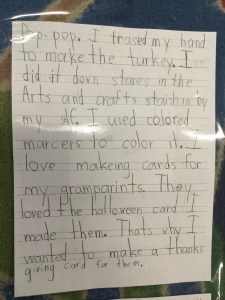 Pop-pop. I trased my hand
to make the turkey. I
did it down stares in the
Arts and crafts stash in by
my self. I used colored
marcers to color it. I
love makeing cards for
my gramparints. They
loved the halloween card I
made them. Thats why I
wanted to make a thanks
giving card for them.